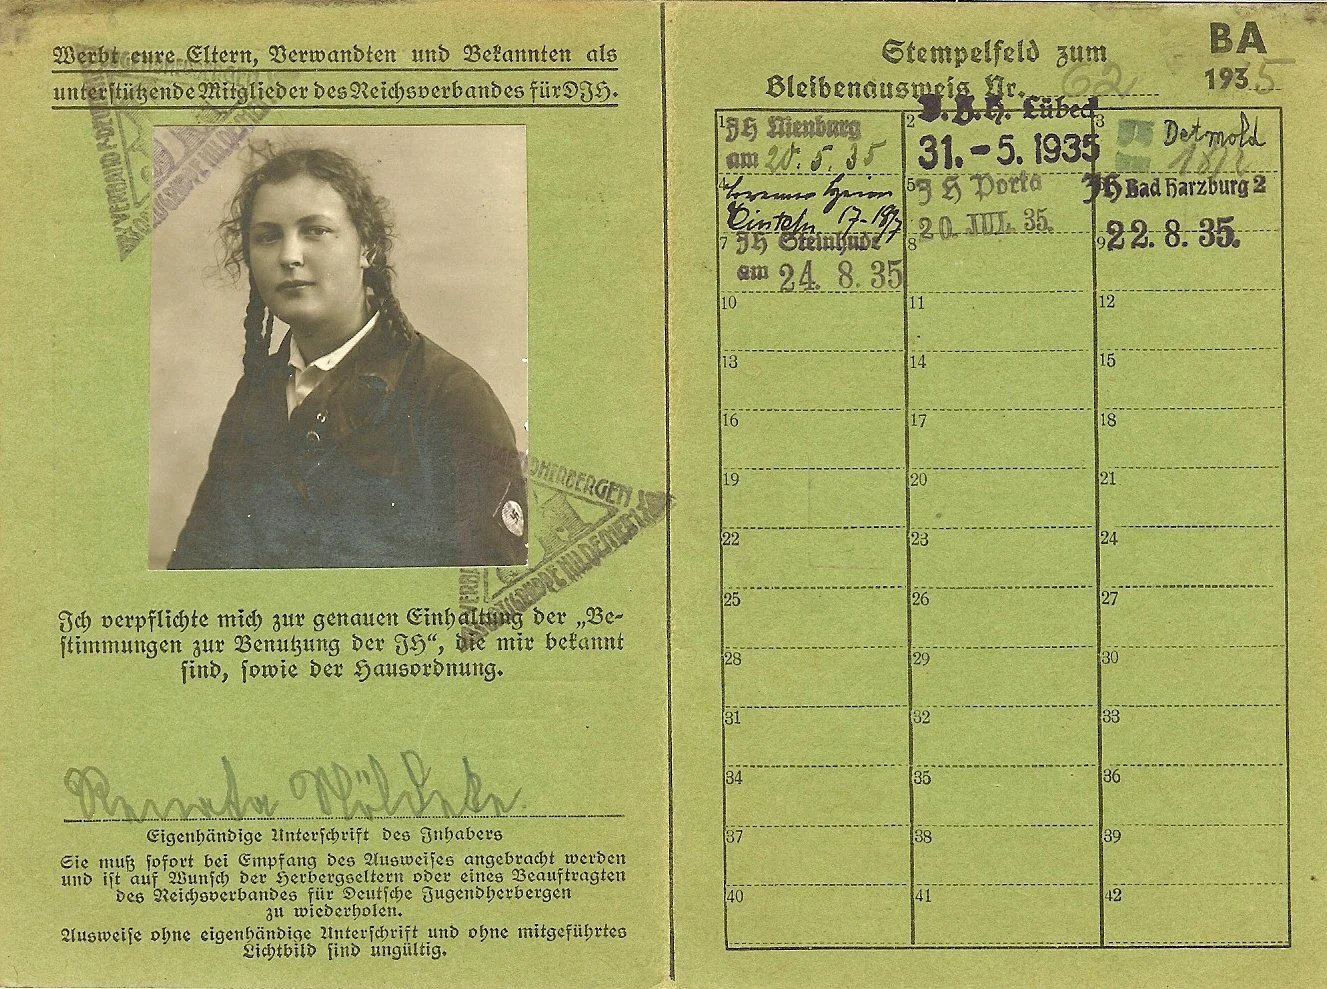 Werbt eure Eltern, Verwandten und Bekannten als
unterstützende Mitglieder des Reichsverbandes für DJH.
Ich verpflichte mich zur genauen Einhaltung der „Be-
stimmungen zur Benutzung der JH“, die mir bekannt
sind, sowie der Hausordnung.
Renata Nöldeke
Eigenhändige Unterschrift des Inhabers
Sie muß sofort bei Empfang des Ausweises angebracht werden
und ist auf Wunsch der Herbergseltern oder eines Beauftragten
des Reichsverbandes für Deutsche Jugendherbergen
zu wiederholen.
Ausweise ohne eigenhändige Unterschrift und ohne mitgeführtes
Lichtbild sind ungültig.
Stempelfeld zum
Bleibenausweis Nr. 62
BA
1935
1 JH Nienburg
am 20. 5. 35
2 Lübeck
31.-5. 1935
3 Detmold
18/7
4
17-18/7
5 JH Porta
20. JUL. 35.
6 JH Bad Harzburg 2
22. 8. 35.
7 JH Steinhude
am 24. 8. 35
8
9
10
11
12
13
14
15
16
17
18
19
20
21
22
23
24
25
26
27
28
29
30
31
32
33
34
35
36
37
38
39
40
41
42